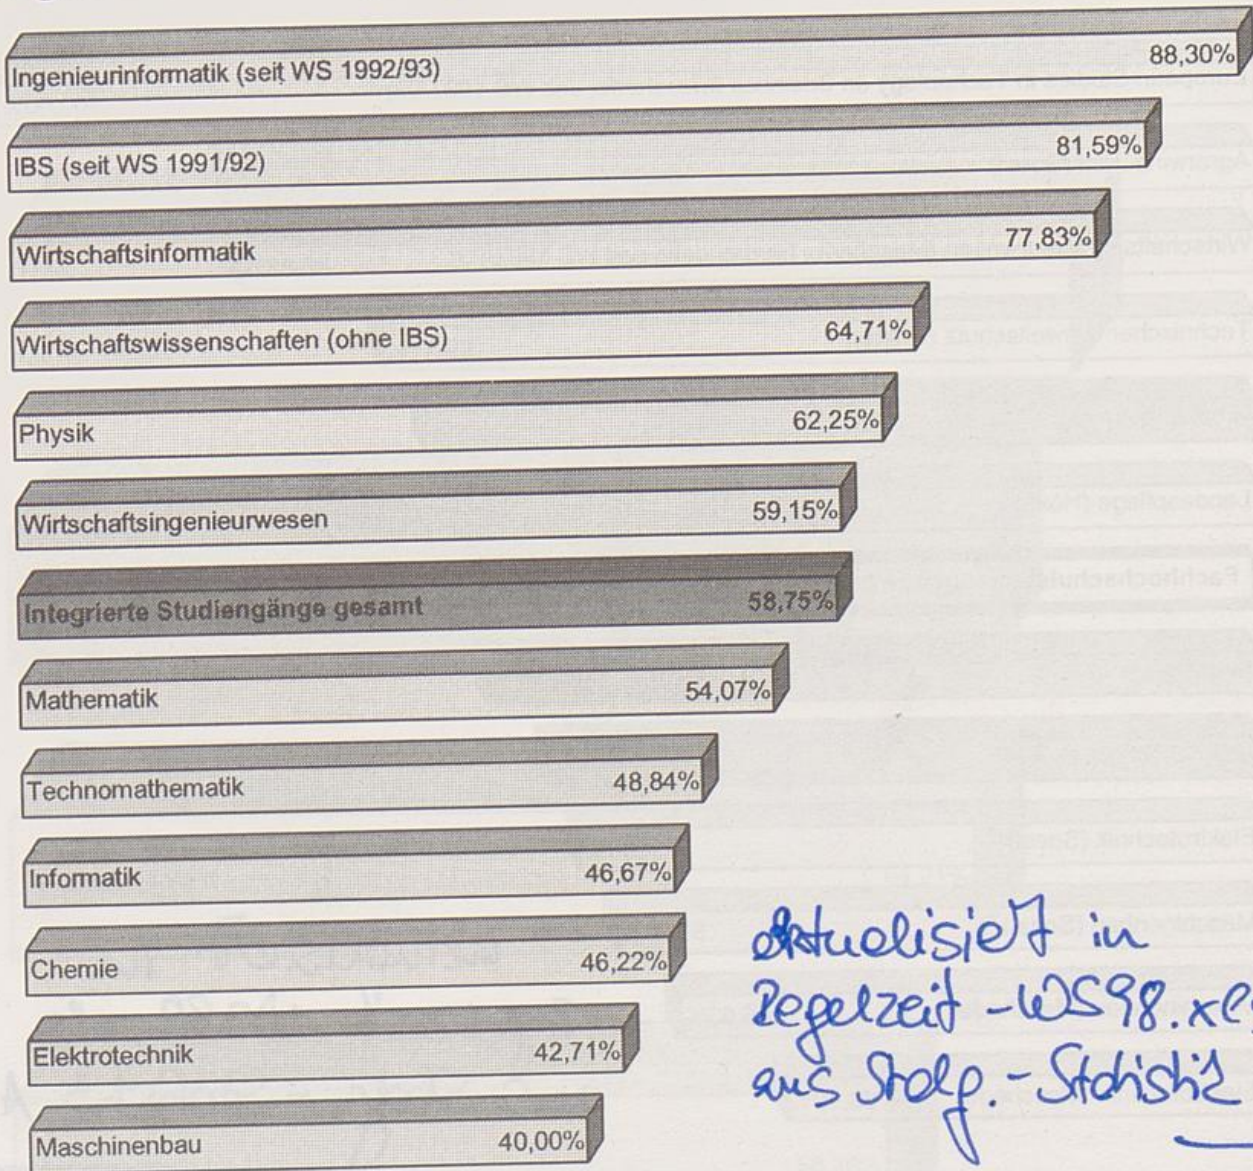 Ingenieurinformatik (seit WS 1992/93) 88,30%
IBS (seit WS 1991/92) 81,59%
Wirtschaftsinformatik 77,83%
Wirtschaftswissenschaften (ohne IBS) 64,71%
Physik 62,25%
Wirtschaftsingenieurwesen 59,15%
Integrierte Studiengänge gesamt 58,75%
Mathematik 54,07%
Technomathematik 48,84%
Informatik 46,67%
Chemie 46,22%
Elektrotechnik 42,71%
Maschinenbau 40,00%
aktualisiert in
Regelzeit-WS98.xls
aus Stdg.-Statistik